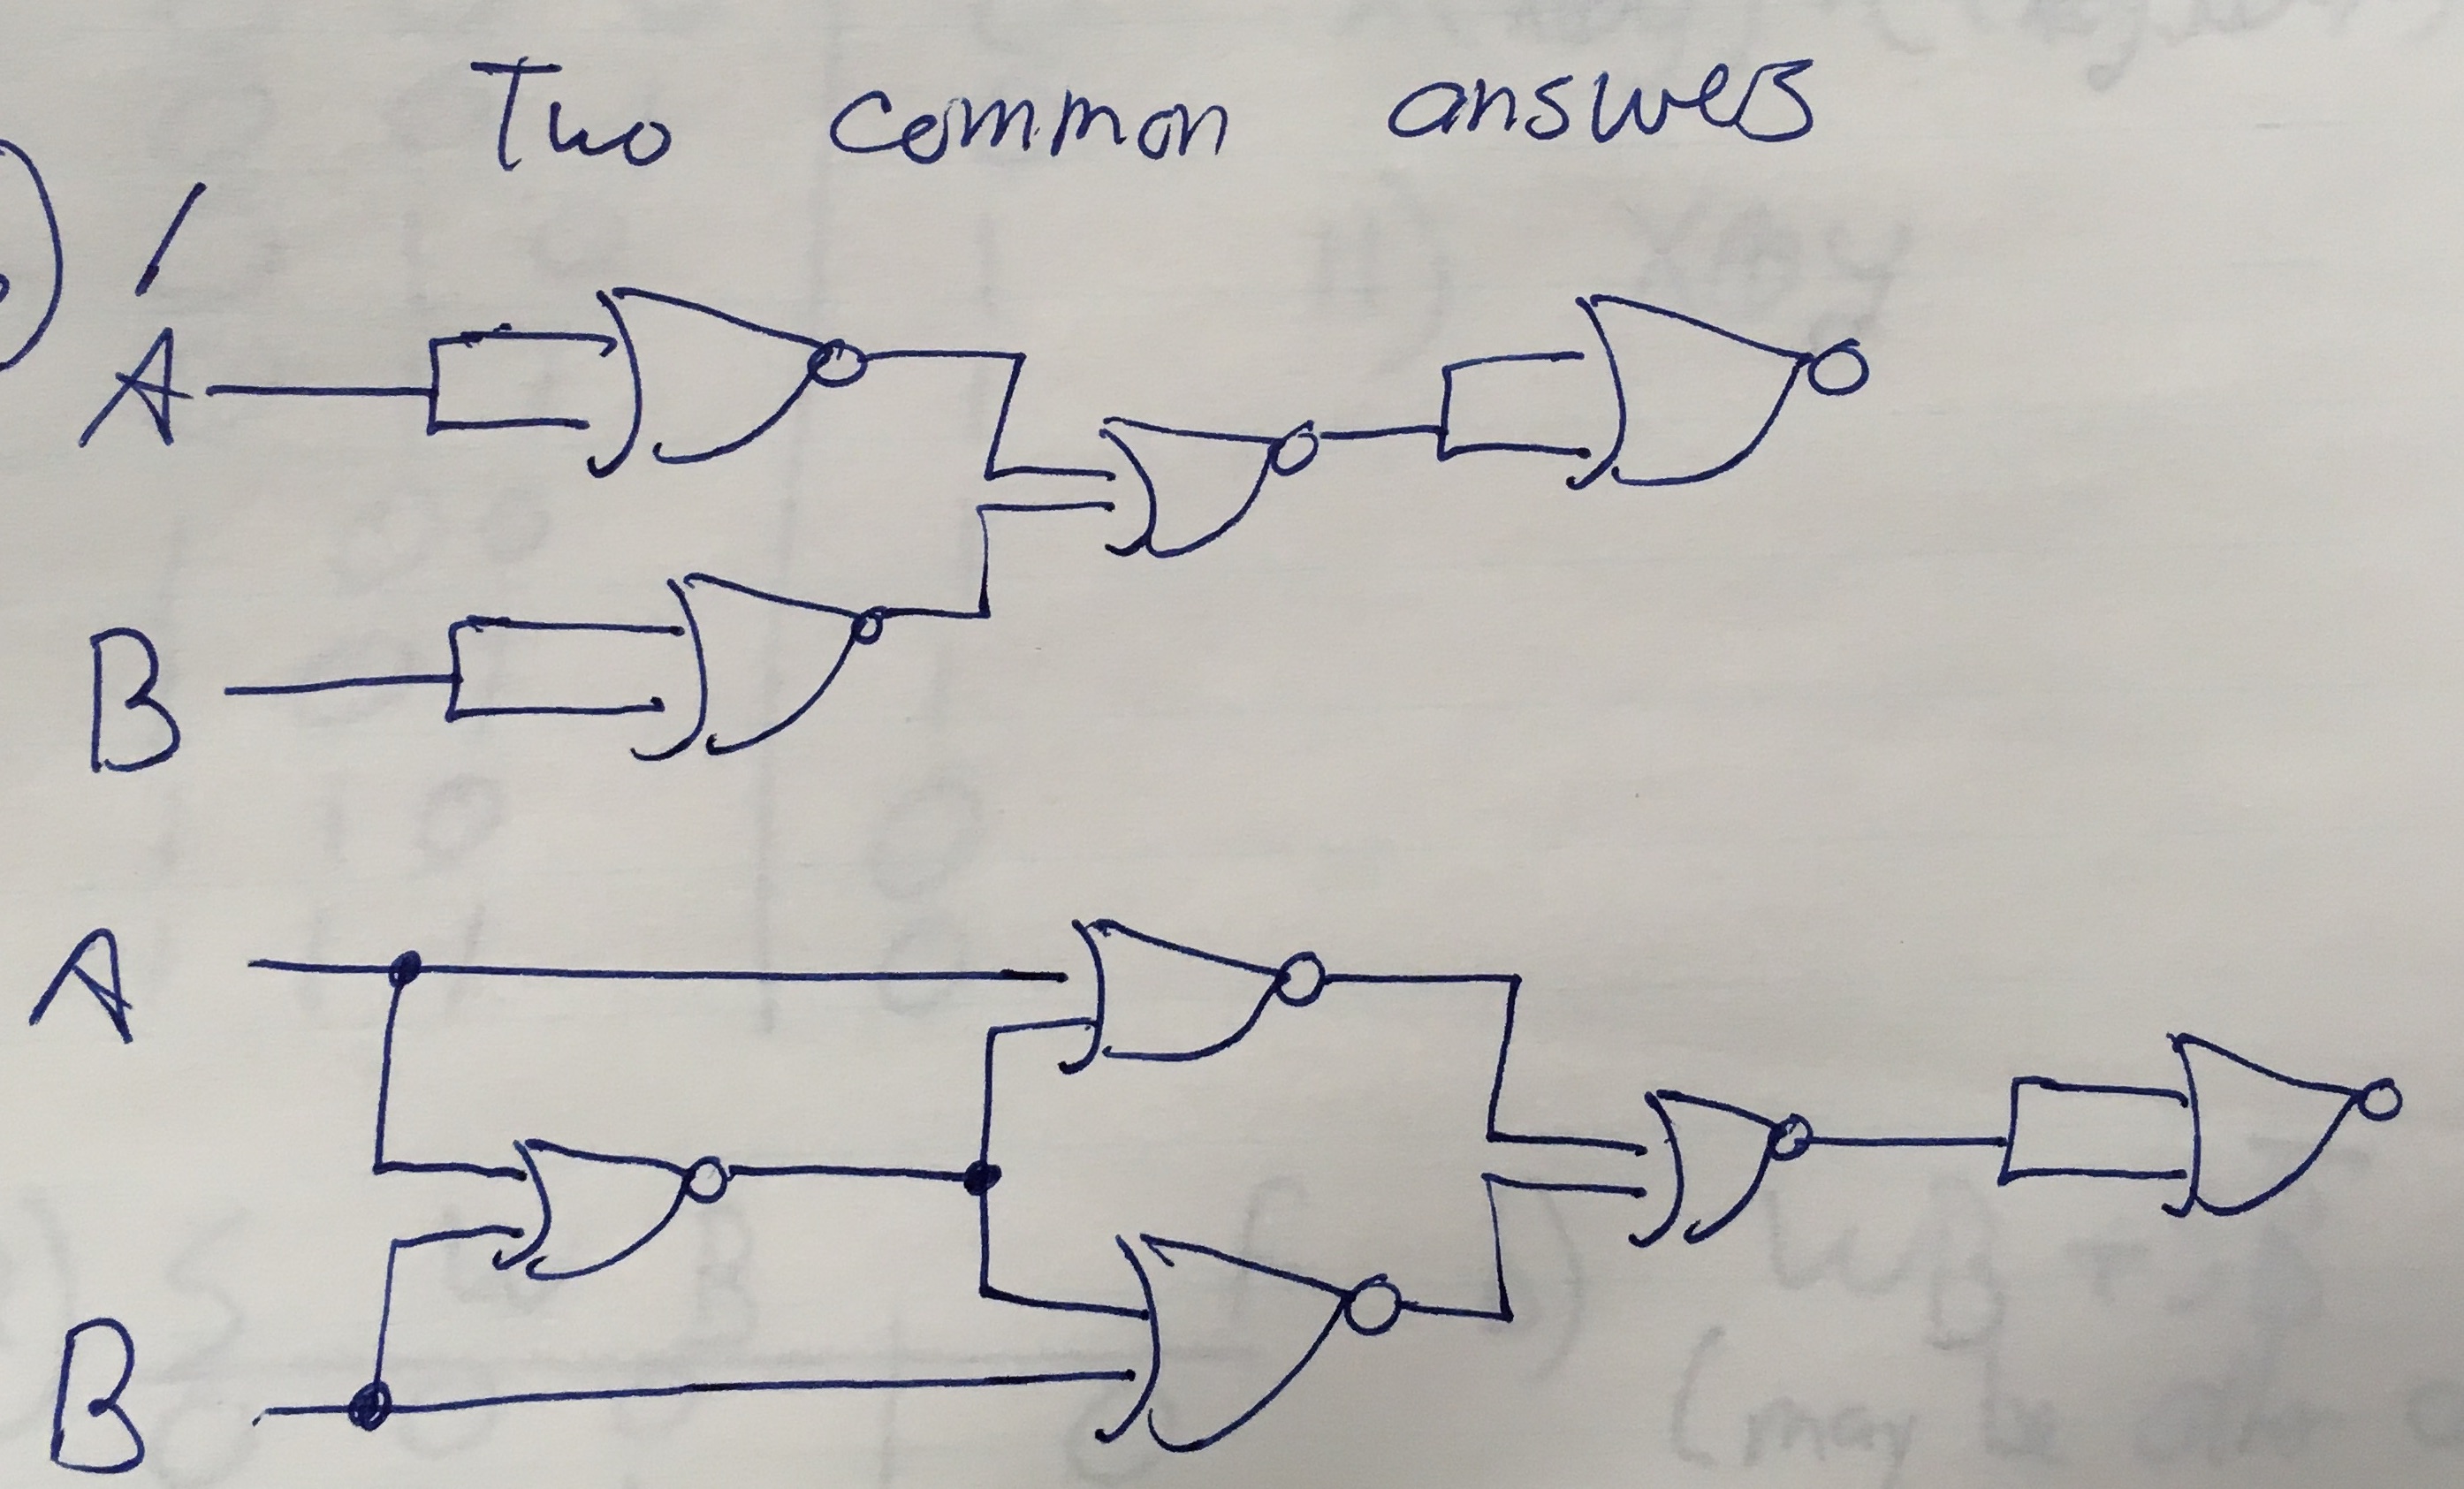 Two common answers
A
B
A
B